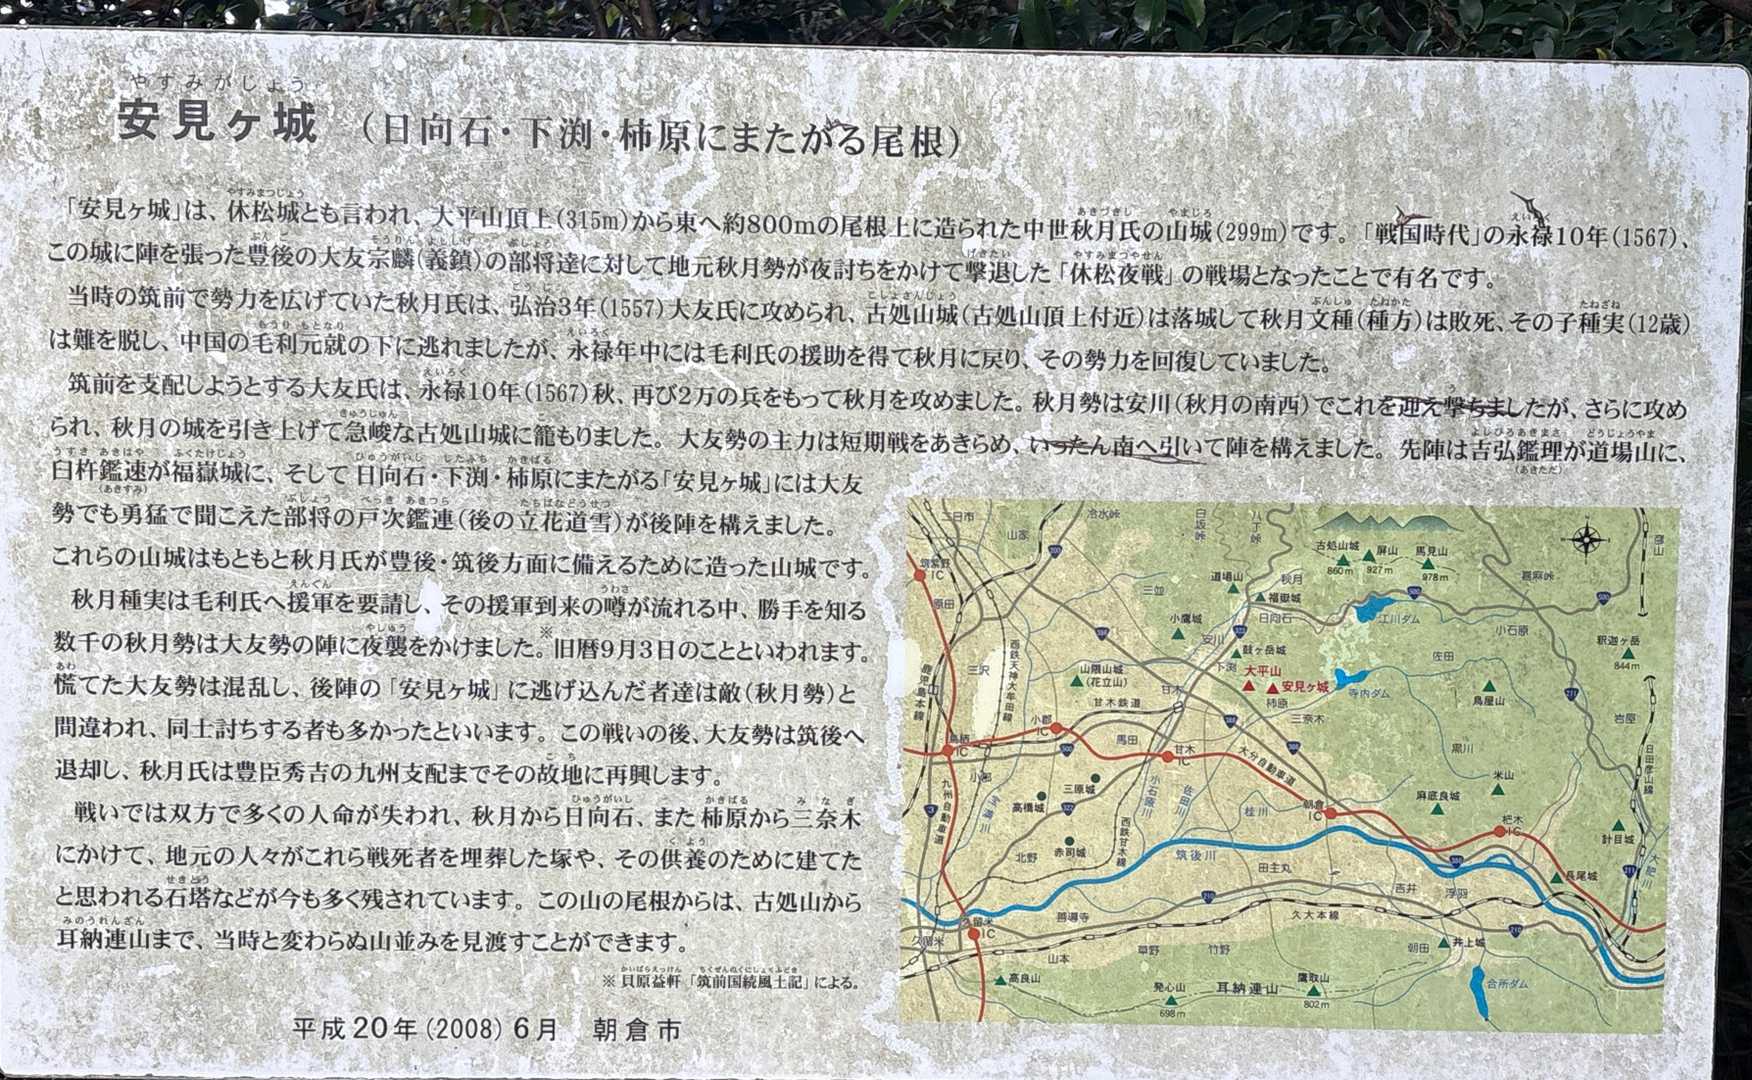 やすみがじょう
安見ヶ城 （日向石・下渕・柿原にまたがる尾根）
「安見ヶ城」は、休松城とも言われ、大平山頂上(315m)から東へ約800mの尾根上に造られた中世秋月氏の山城(299m)です。「戦国時代」の永禄10年(1567)、
この城に陣を張った豊後の大友宗麟(義鎮)の部将達に対して地元秋月勢が夜討ちをかけて撃退した「休松夜戦」の戦場となったことで有名です。
当時の筑前で勢力を広げていた秋月氏は、弘治3年(1557)大友氏に攻められ、古処山城(古処山頂上付近)は落城して秋月文種(種方)は敗死、その子種実(12歳)
は難を脱し、中国の毛利元就の下に逃れましたが、永禄年中には毛利氏の援助を得て秋月に戻り、その勢力を回復していました。
筑前を支配しようとする大友氏は、永禄10年(1567)秋、再び2万の兵をもって秋月を攻めました。秋月勢は安川(秋月の南西)でこれを迎え撃ちましたが、さらに攻め
られ、秋月の城を引き上げて急峻な古処山城に籠もりました。大友勢の主力は短期戦をあきらめ、いったん南へ引いて陣を構えました。先陣は吉弘鑑理が道場山に、
臼杵鑑速が福嶽城に、そして日向石・下渕・柿原にまたがる「安見ヶ城」には大友
勢でも勇猛で聞こえた部将の戸次鑑連(後の立花道雪)が後陣を構えました。
これらの山城はもともと秋月氏が豊後・筑後方面に備えるために造った山城です。
秋月種実は毛利氏へ援軍を要請し、その援軍到来の噂が流れる中、勝手を知る
数千の秋月勢は大友勢の陣に夜襲をかけました。※旧暦9月3日のことといわれます。
慌てた大友勢は混乱し、後陣の「安見ヶ城」に逃げ込んだ者達は敵(秋月勢)と
間違われ、同士討ちする者も多かったといいます。この戦いの後、大友勢は筑後へ
退却し、秋月氏は豊臣秀吉の九州支配までその故地に再興します。
戦いでは双方で多くの人命が失われ、秋月から日向石、また柿原から三奈木
にかけて、地元の人々がこれら戦死者を埋葬した塚や、その供養のために建てた
と思われる石塔などが今も多く残されています。この山の尾根からは、古処山から
耳納連山まで、当時と変わらぬ山並みを見渡すことができます。
※ 貝原益軒「筑前国続風土記」による。
平成20年(2008)6月 朝倉市
二日市
冷水峠
白坂峠
八丁峠
山家
古処山城
860m
屏山
927m
馬見山
978m
嘉麻峠
筑紫野IC
原田
三並
道場山
秋月
福嶽城
日向石
江川ダム
小石原
釈迦ヶ岳
844m
小鷹城
安川
鼓ヶ岳城
下渕
大平山
安見ヶ城
柿原
佐田
寺内ダム
鳥屋山
三沢
西鉄天神大牟田線
鹿児島本線
山隈山城
(花立山)
甘木
甘木鉄道
三奈木
岩屋
黒川
日田彦山線
鳥栖IC
小郡IC
馬田
甘木IC
大分自動車道
小郡
三原城
高橋城
九州自動車道
宝満川
小石原川
佐田川
桂川
朝倉IC
米山
麻底良城
杷木IC
針目城
北野
赤司城
西鉄甘木線
筑後川
田主丸
吉井
浮羽
長尾城
大肥川
久留米IC
久留米
善導寺
久大本線
山本
草野
竹野
朝田
井上城
高良山
発心山
698m
耳納連山
鷹取山
802m
合所ダム